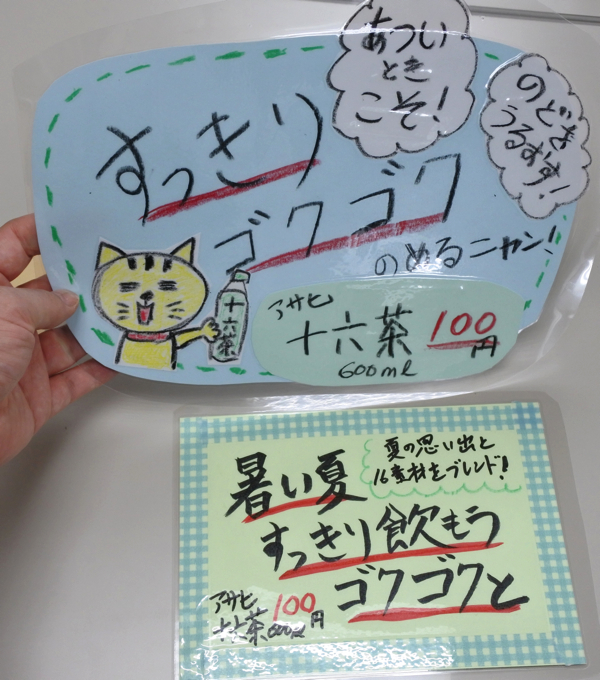 あつい
とき
こそ!
のどを
うるおす!
すっきり
ゴクゴク
のめるニャン!
十六茶
アサヒ
十六茶 100円
600ml
夏の思い出と
16素材をブレンド!
暑い夏
すっきり飲もう
ゴクゴクと
アサヒ
十六茶 600ml 100円